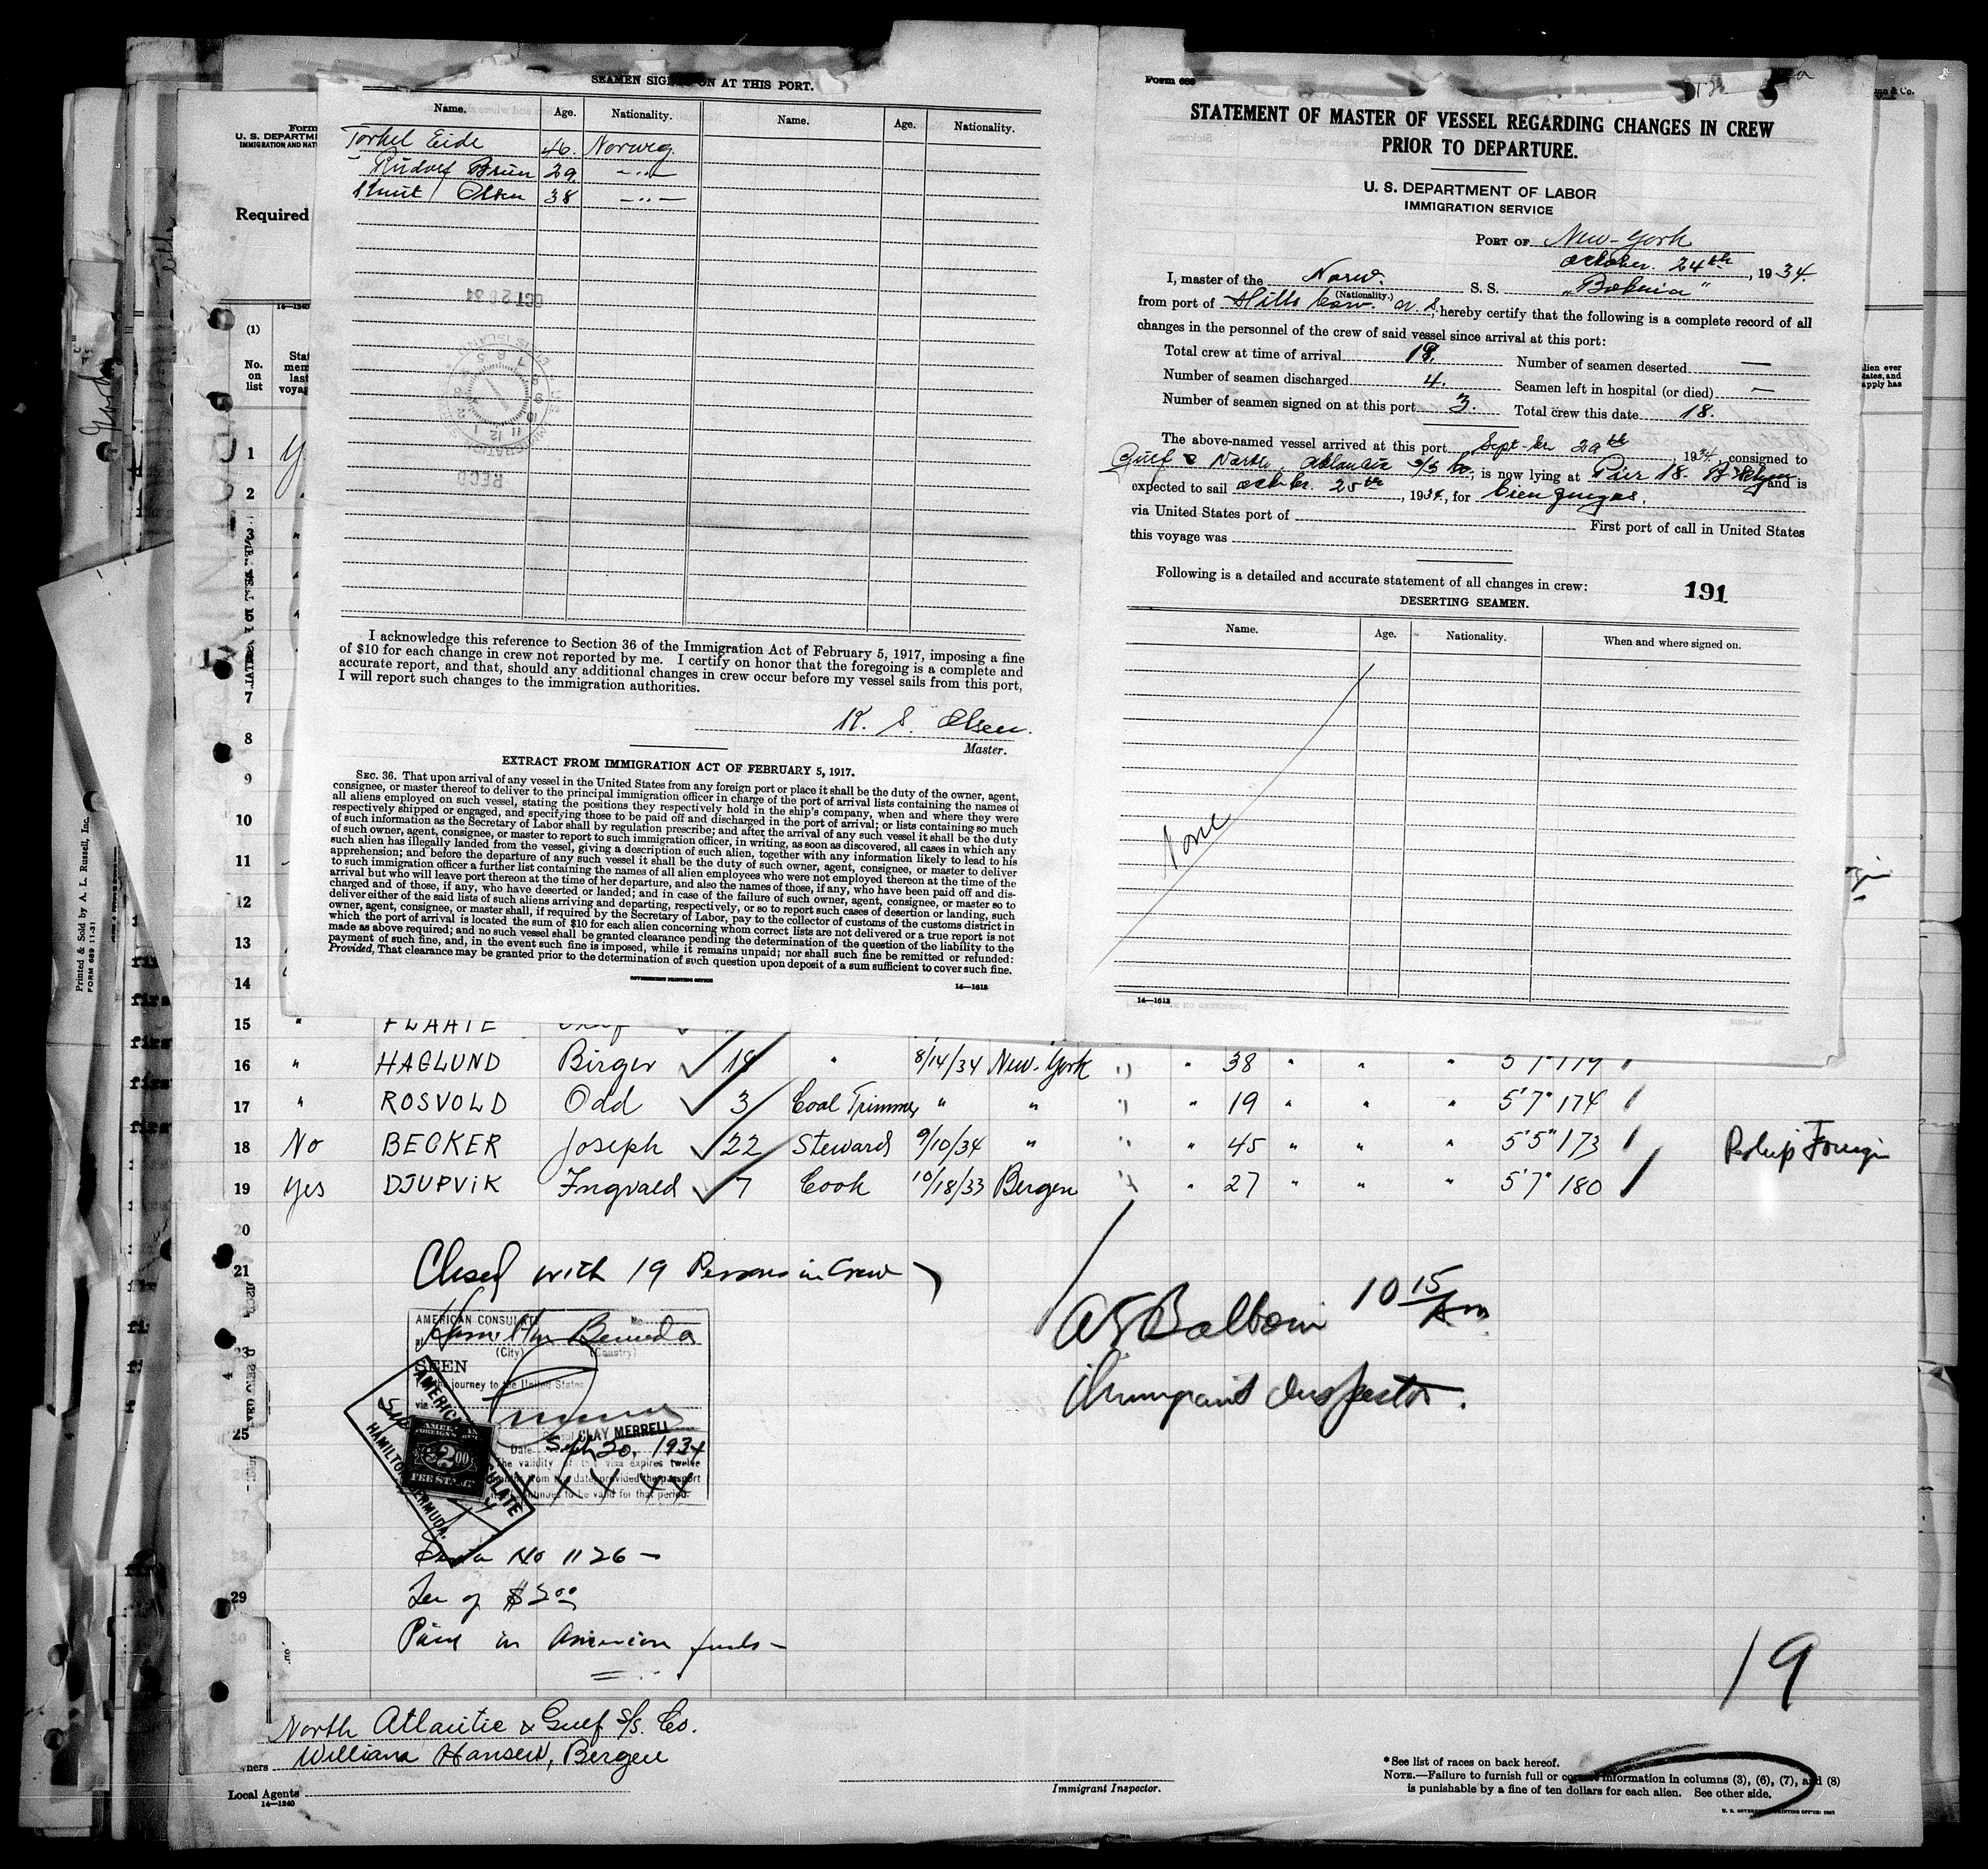 SEAMEN SIGNED ON AT THIS PORT.
Name. Age. Nationality. Name. Age. Nationality.
Torkel Eide 46. Norweg.
Rudolf Bruun 29. -"-
Knut Olsen 38 -"-
OCT 26 34
RECD
I acknowledge this reference to Section 36 of the Immigration Act of February 5, 1917, imposing a fine
of $10 for each change in crew not reported by me. I certify on honor that the foregoing is a complete and
accurate report, and that, should any additional changes in crew occur before my vessel sails from this port,
I will report such changes to the immigration authorities.
K. S. Olsen.
Master.
EXTRACT FROM IMMIGRATION ACT OF FEBRUARY 5, 1917.
SEC. 36. That upon arrival of any vessel in the United States from any foreign port or place it shall be the duty of the owner, agent,
consignee, or master thereof to deliver to the principal immigration officer in charge of the port of arrival lists containing the names of
all aliens employed on such vessel, stating the positions they respectively hold in the ship's company, when and where they were
respectively shipped or engaged, and specifying those to be paid off and discharged in the port of arrival; or lists containing so much
of such information as the Secretary of Labor shall by regulation prescribe; and after the arrival of any such vessel it shall be the duty
of such owner, agent, consignee, or master to report to such immigration officer, in writing, as soon as discovered, all cases in which any
such alien has illegally landed from the vessel, giving a description of such alien, together with any information likely to lead to his
apprehension; and before the departure of any such vessel it shall be the duty of such owner, agent, consignee, or master to deliver
to such immigration officer a further list containing the names of all alien employees who were not employed thereon at the time of the
arrival but who will leave port thereon at the time of her departure, and also the names of those, if any, who have been paid off and dis-
charged and of those, if any, who have deserted or landed; and in case of the failure of such owner, agent, consignee, or master so to
deliver either of the said lists of such aliens arriving and departing, respectively, or so to report such cases of desertion or landing, such
owner, agent, consignee, or master shall, if required by the Secretary of Labor, pay to the collector of customs of the customs district in
which the port of arrival is located the sum of $10 for each alien concerning whom correct lists are not delivered or a true report is not
made as above required; and no such vessel shall be granted clearance pending the determination of the question of the liability to the
payment of such fine, and, in the event such fine is imposed, while it remains unpaid; nor shall such fine be remitted or refunded:
Provided, That clearance may be granted prior to the determination of such question upon deposit of a sum sufficient to cover such fine.
GOVERNMENT PRINTING OFFICE 14—1613
Form 689
STATEMENT OF MASTER OF VESSEL REGARDING CHANGES IN CREW
PRIOR TO DEPARTURE.
U. S. DEPARTMENT OF LABOR
IMMIGRATION SERVICE
PORT OF New-York
October. 24th, 1934.
I, master of the Norw. S. S. "Boknia"
(Nationality.)
from port of hereby certify that the following is a complete record of all
changes in the personnel of the crew of said vessel since arrival at this port:
Total crew at time of arrival 19. Number of seamen deserted —
Number of seamen discharged 4. Seamen left in hospital (or died) —
Number of seamen signed on at this port 3. Total crew this date 18.
The above-named vessel arrived at this port Sept-br 29th, 1934, consigned to
Gulf & North Atlantic S/S Co, is now lying at Pier 18. and is
expected to sail Octbr. 25th, 1934, for Cienfuegos.
via United States port of First port of call in United States
this voyage was
Following is a detailed and accurate statement of all changes in crew: 191
DESERTING SEAMEN.
Name. Age. Nationality. When and where signed on.
None
14—1613
Form
U. S. DEPARTME
IMMIGRATION AND NAT
Required
14—1240
(1)
No. on list
1
2
7
8
9
10
11
12
13
14
15 " FLAATE
16 " HAGLUND Birger 19 " 8/14/34 New-York " " 38 " " " 5'7" 179
17 " ROSVOLD Odd 3 Coal Trimmer " " " " 19 " " " 5'7" 174
18 No BECKER Joseph 22 Steward 9/10/34 " " " 45 " " " 5'5" 173 Reship Foreign
19 Yes DJUPVIK Ingvald 7 Cook 10/18/33 Bergen " " 27 " " " 5'7" 180
20
21 Closed with 19 Persons in Crew
A Balboni 10 15/Am
Immigrant Inspector.
AMERICAN CONSULATE No
at Hamilton Bermuda
(City) (Country)
SEEN
For the journey to the United States
via
CLAY MERRELL
Date Sept 20, 1934
The validity of this visa expires twelve
months from this date, provided the passport
continues to be valid for that period.
AMERICAN CONSULATE
HAMILTON, BERMUDA.
AMERICAN
FOREIGN SERVICE
$2.00
FEE STAMP
23
25
27
28 No 1126 —
29 Fee of $2.00
30 Paid in American funds —
19
North Atlantic & Gulf S/S. Co.
William Hansen, Bergen
Owners
Local Agents
14—1240
Immigrant Inspector.
*See list of races on back hereof.
NOTE.—Failure to furnish full or correct information in columns (3), (6), (7), and (8)
is punishable by a fine of ten dollars for each alien. See other side.
Printed & Sold by A. L. Russell, Inc.
FORM 689 11-31